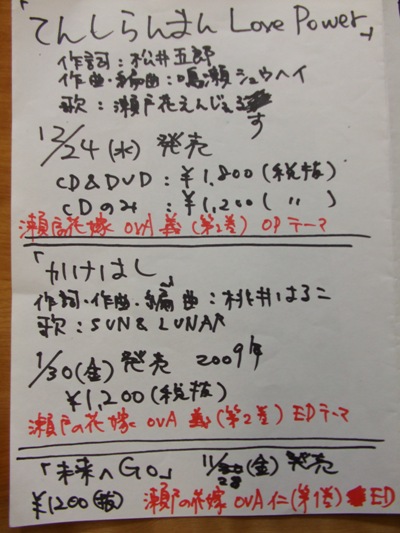 「てんしらんまん Love Power」
作詞:松井五郎
作曲・編曲:鳴瀬シュウヘイ
歌:瀬戸花えんじぇるす
12/24(水) 発売
CD&DVD:¥1,800(税抜)
CDのみ:¥1,200( 〃 )
瀬戸の花嫁 OVA 義(第2巻) OPテーマ
「かけはし」
作詞・作曲・編曲:桃井はるこ
歌:SUN&LUNAR
1/30(金)発売 2009年
¥1,200(税抜)
瀬戸の花嫁 OVA 義(第2巻) EDテーマ
「未来へGO」 11/28(金)発売
¥1200(税抜) 瀬戸の花嫁 OVA 仁(第1巻) ED